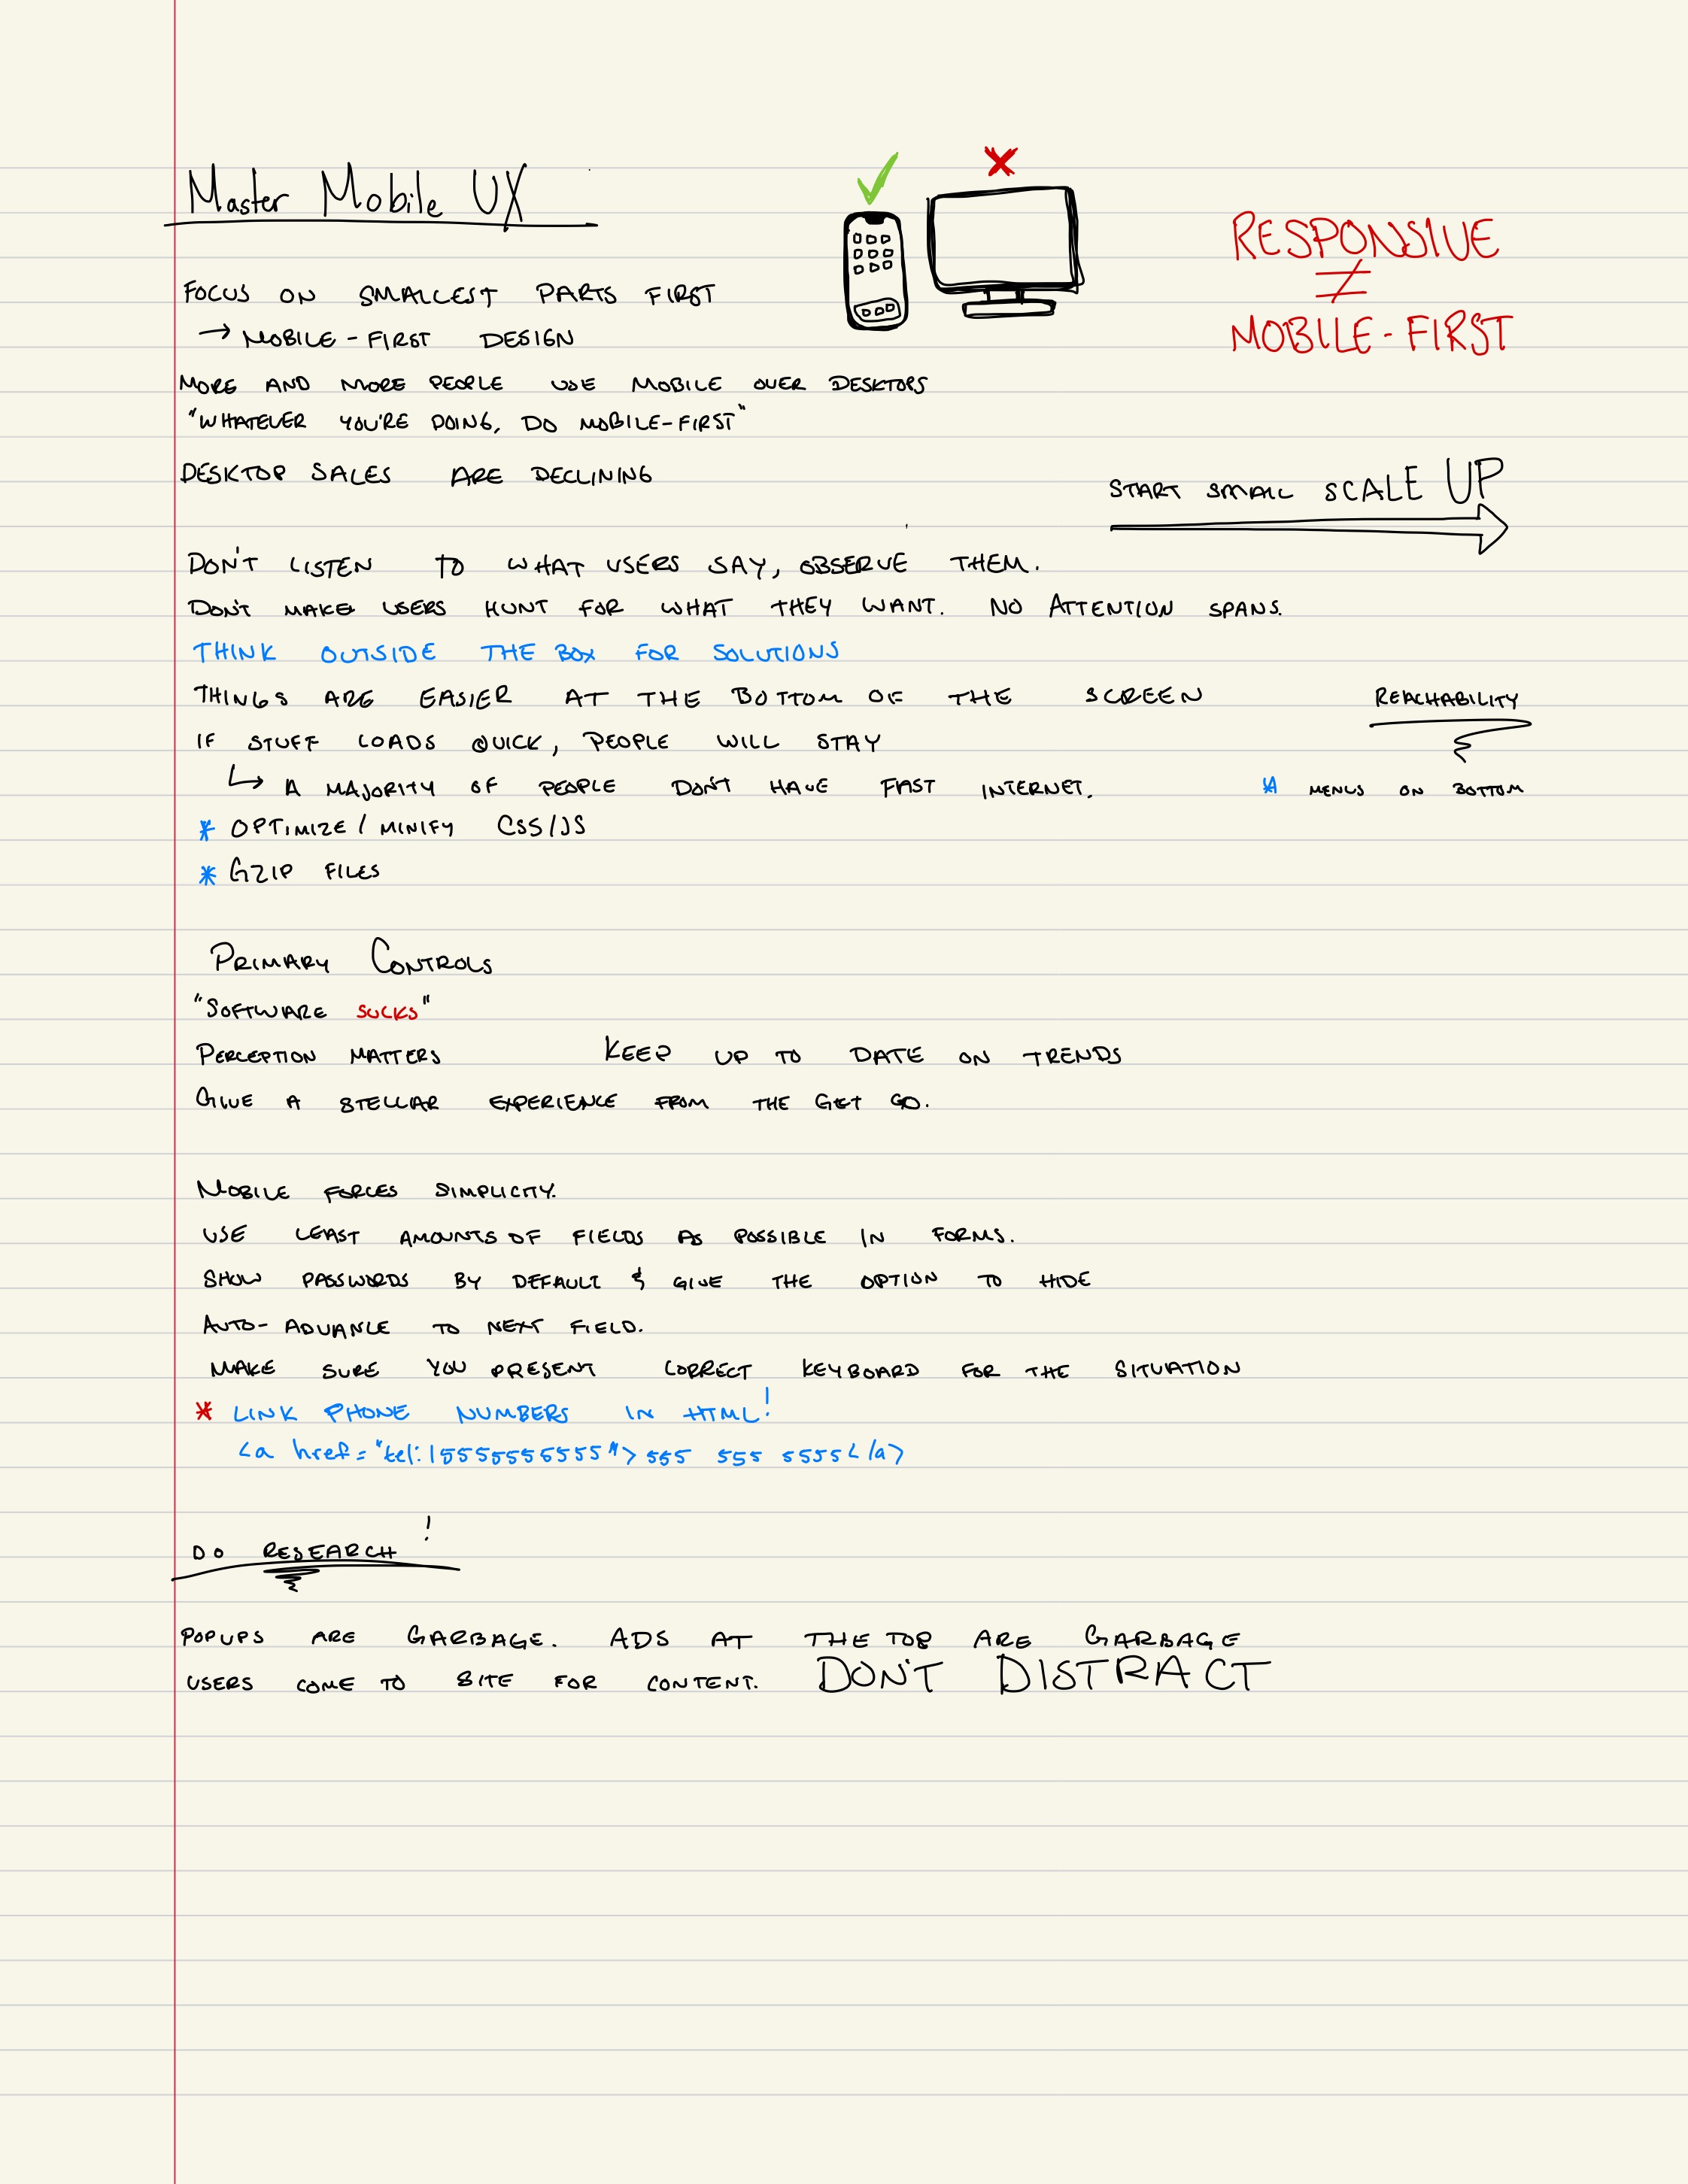 Master Mobile UX
RESPONSIVE
≠
MOBILE-FIRST
FOCUS ON SMALLEST PARTS FIRST
→ MOBILE-FIRST DESIGN
MORE AND MORE PEOPLE USE MOBILE OVER DESKTOPS
"WHATEVER YOU'RE DOING, DO MOBILE-FIRST"
DESKTOP SALES ARE DECLINING
START SMALL SCALE UP
DON'T LISTEN TO WHAT USERS SAY, OBSERVE THEM.
DON'T MAKE USERS HUNT FOR WHAT THEY WANT. NO ATTENTION SPANS.
THINK OUTSIDE THE BOX FOR SOLUTIONS
THINGS ARE EASIER AT THE BOTTOM OF THE SCREEN
REACHABILITY
IF STUFF LOADS QUICK, PEOPLE WILL STAY
↳ A MAJORITY OF PEOPLE DON'T HAVE FAST INTERNET.
* MENUS ON BOTTOM
* OPTIMIZE/MINIFY CSS/JS
* GZIP FILES
PRIMARY CONTROLS
"SOFTWARE SUCKS"
PERCEPTION MATTERS KEEP UP TO DATE ON TRENDS
GIVE A STELLAR EXPERIENCE FROM THE GET GO.
MOBILE FORCES SIMPLICITY.
USE LEAST AMOUNTS OF FIELDS AS POSSIBLE IN FORMS.
SHOW PASSWORDS BY DEFAULT & GIVE THE OPTION TO HIDE
AUTO-ADVANCE TO NEXT FIELD.
MAKE SURE YOU PRESENT CORRECT KEYBOARD FOR THE SITUATION
* LINK PHONE NUMBERS IN HTML!
<a href="tel:15555555555">555 555 5555</a>
DO RESEARCH!
POPUPS ARE GARBAGE. ADS AT THE TOP ARE GARBAGE
USERS COME TO SITE FOR CONTENT. DON'T DISTRACT